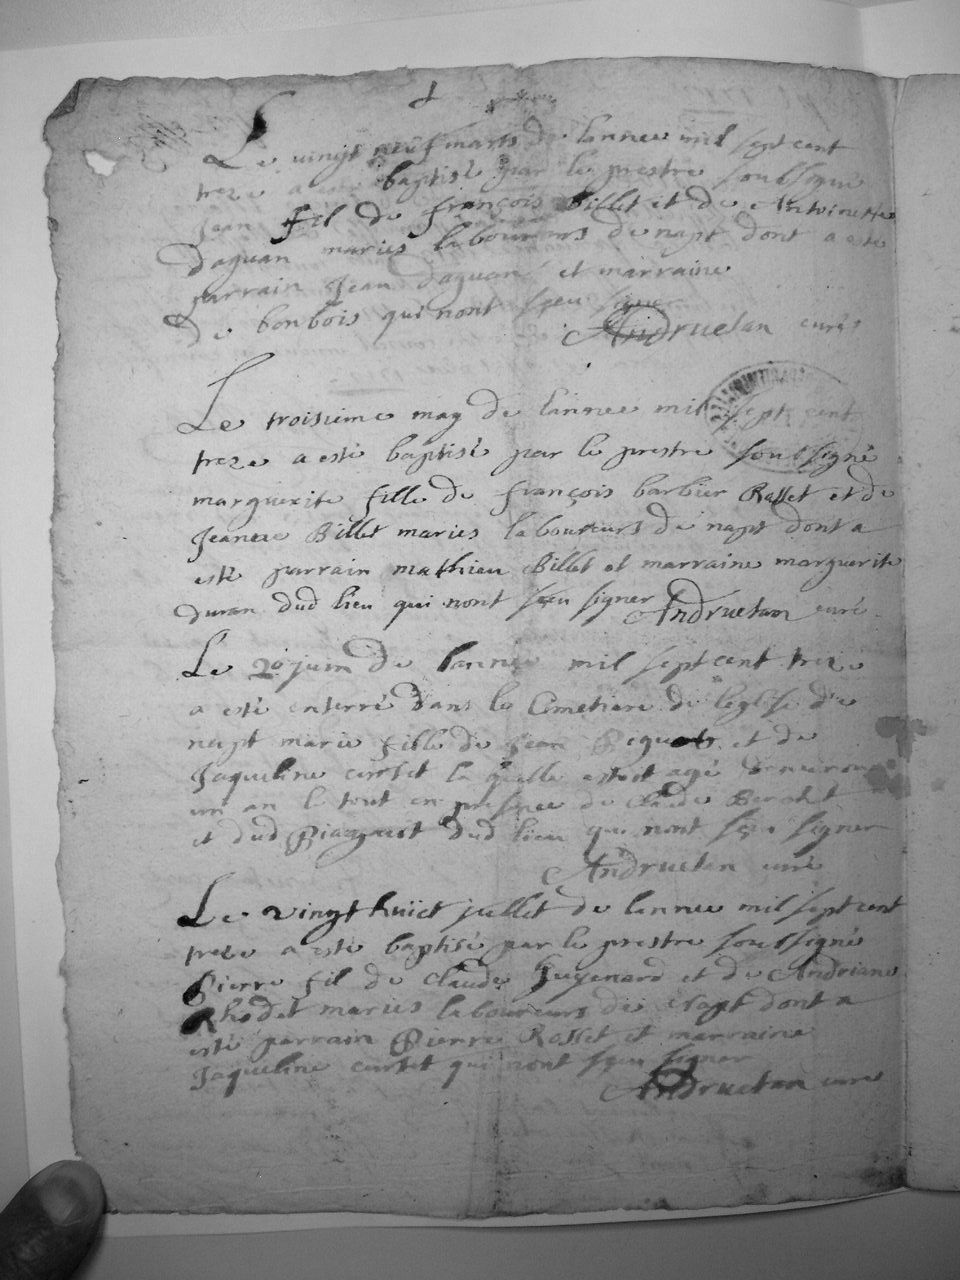 Le vingt neuf marts de lannee mil sept cent
treze a esté baptisé par le prestre soubsigné
Jean fil de françois Billet et de Antoinette
daguan maries laboureurs de napt dont a esté
parrain Jean daguan et marraine
de bonbois qui nont sçeu signer
Andruetan curé
Le troisieme may de lannee mil sept cent
treze a esté baptisé par le prestre soubsigné
marguerite fille de françois barbier Rosset et de
Jeanne Billet maries laboureurs de napt dont a
esté parrain mathieu Billet et marraine marguerite
duran dud lieu qui nont sçeu signer Andruetan curé
Le 20 juin de lannee mil sept cent treze
a esté enterré dans le Cimetiere de leglise de
napt marie fille de Jean et de
Jaqueline curtet la quelle estoit agé denviron
un an le tout en presence de Claude
et dud dud lieu qui nont sçeu signer
Andruetan curé
Le vingt huict juellet de lannee mil sept cent
treze a esté baptisé par le prestre soubsigné
Pierre fil de Claude Juyenard et de Andriane
Rhodet maries laboureurs de Napt dont a
esté parrain Pierre Rosset et marraine
Jaqueline curtet qui nont sçeu signer
Andruetan curé